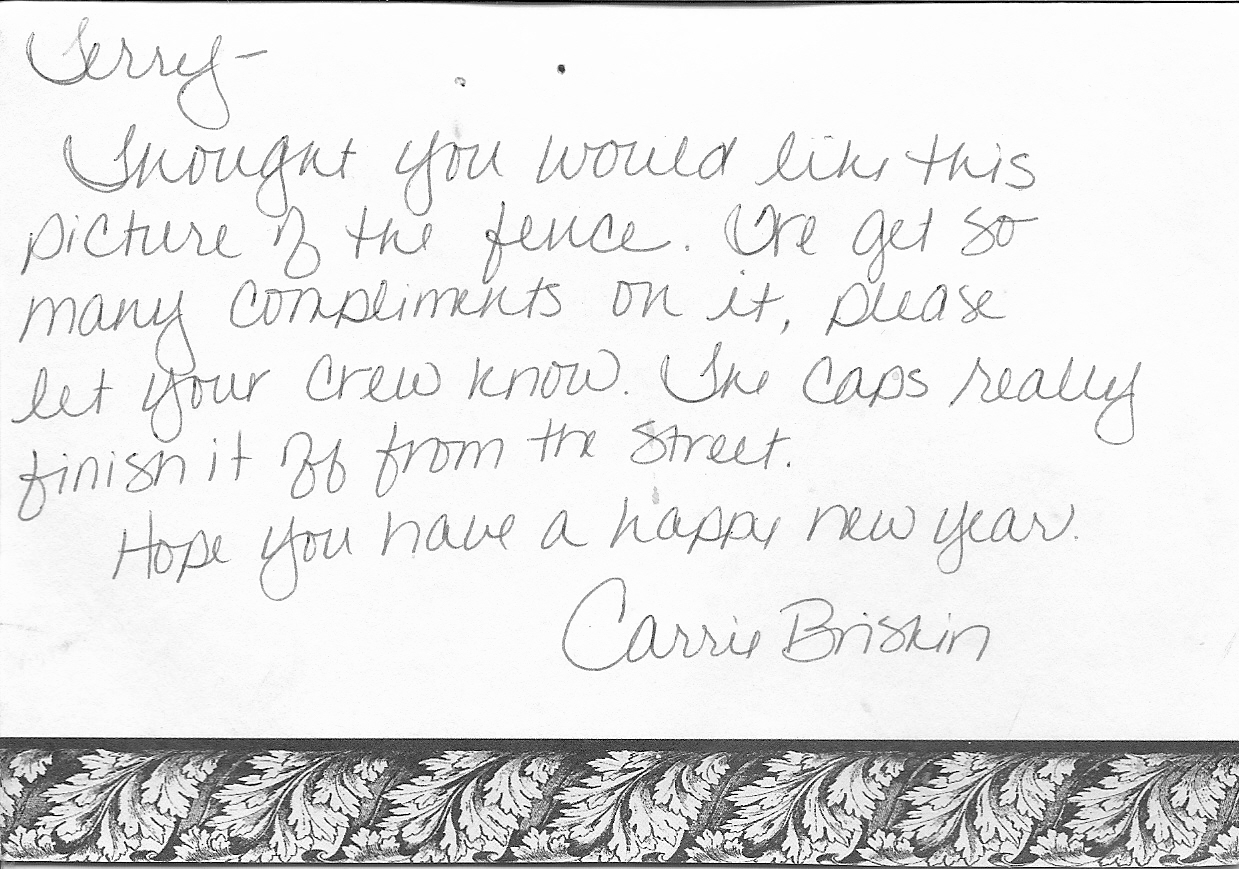 Terry-
Thought you would like this
picture of the fence. We get so
many compliments on it, please
let your crew know. The caps really
finish it off from the street.
Hope you have a happy new year.
Carrie Briskin